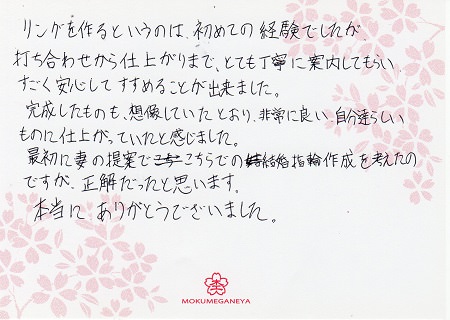 リングを作るというのは、初めての経験でしたが、
打ち合わせから仕上がりまで、とても丁寧に案内してもらい
すごく安心してすすめることが出来ました。
完成したものも、想像していたとおり、非常に良い、自分達らしい
ものに仕上がっていたと感じました。
最初に妻の提案でこちらでの結婚指輪作成を考えたの
ですが、正解だったと思います。
本当にありがとうございました。
MOKUMEGANEYA